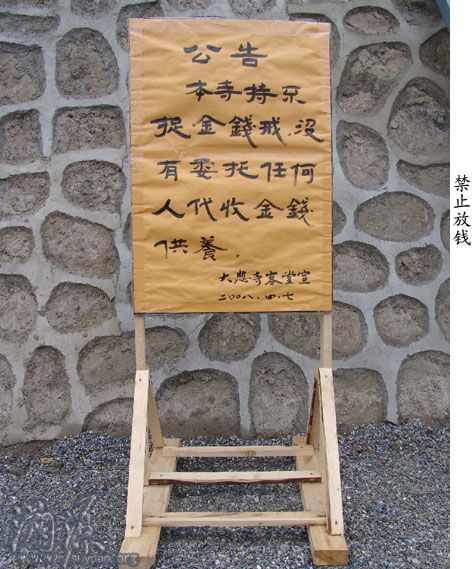 公告
本寺持不
捉金錢戒,没
有委托任何
人代收金錢
供養。
大悲寺客堂宣
二00八.四.七
禁止放钱